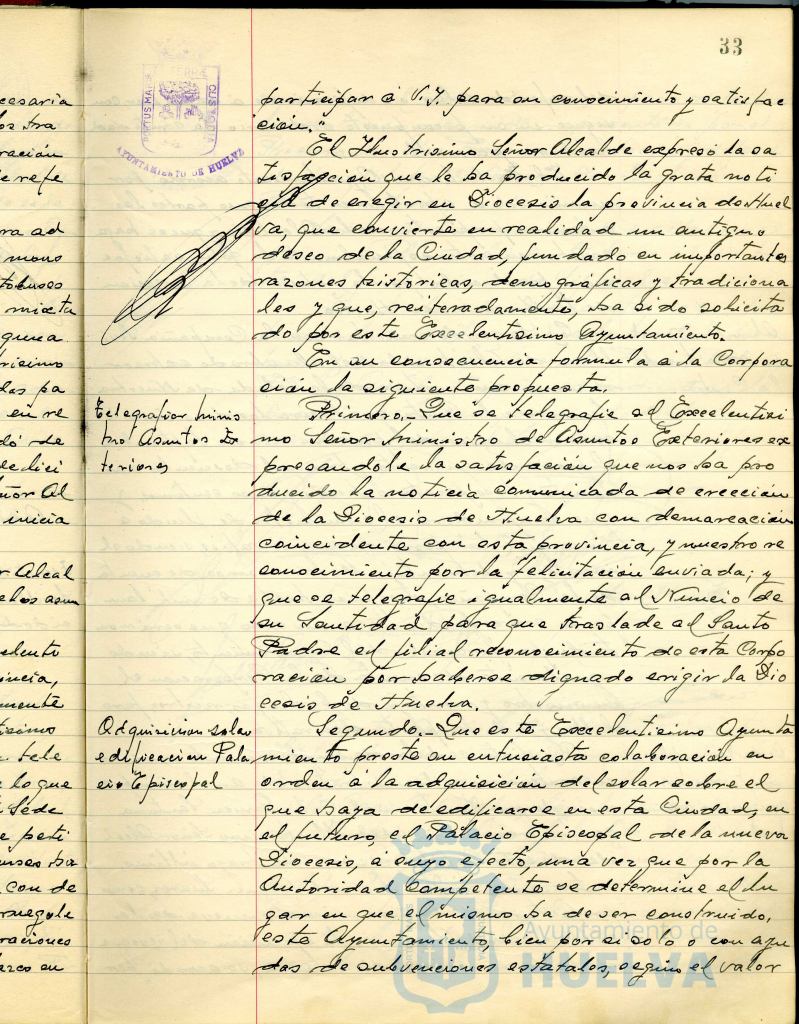 33
PORTUS MARIS
CUSTODIA
AYUNTAMIENTO DE HUELVA
participar á V.I. para su conocimiento y satisfac
ción."
El Ilustrisimo Señor Alcalde expresó la sa
tisfación que le ha producido la grata noti
cia de eregir en Diocesis la provincia de Huel
va, que convierte en realidad un antiguo
deseo de la Ciudad, fundado en importantes
razones historicas, demográficas y tradiciona
les y que, reiteradamente, ha sido solicita
do por este Excelentisimo Ayuntamiento.
En su consecuencia formula á la Corpora
ción la siguiente propuesta.
Telegrafiar Minis
tro Asuntos Ex
teriores
Primero.- Que se telegrafie al Excelentisi
mo Señor Ministro de Asuntos Exteriores ex
presandole la satisfación que nos ha pro
ducido la noticia comunicada de erección
de la Diocesis de Huelva con demarcación
coincidente con esta provincia, y nuestro re
conocimiento por la felicitación enviada; y
que se telegrafie igualmente al Nuncio de
su Santidad para que traslade al Santo
Padre el filial reconocimiento de esta Corpo
ración por haberse dignado erigir la Dio
cesis de Huelva.
Adquisicion solar
edificacion Pala
cio Episcopal
Segundo.- Que este Excelentisimo Ayunta
miento preste su entusiasta colaboración en
orden á la adquisición del solar sobre el
que haya de edificarse en esta Ciudad, en
el futuro, el Palacio Episcopal de la nueva
Diocesis, á cuyo efecto, una vez que por la
Autoridad competente se determine el lu
gar en que el mismo ha de ser construido,
este Ayuntamiento, bien por si solo o con ayu
das de subvenciones estatales, según el valor
Ayuntamiento de
HUELVA
cesaria
ración
e refe
ra ad
mixta
risimo
das pa
en re
dó de
ñor Al
inicia
r Alcal
incia,
mente
tisimo
tele
lo que
Sede
e peti
con de
raciones